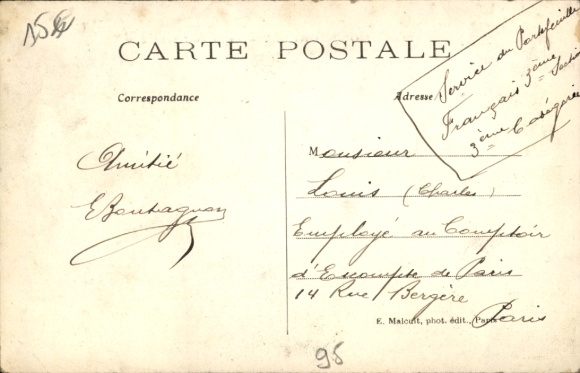 15
CARTE POSTALE
Correspondance
Adresse
Service du Portefeuille
Français 3ème Section
3ème Catégorie
Amitié
Monsieur
Louis (Charles)
Employé au Comptoir
d'Escompte de Paris
14 Rue Bergère
Paris
E. Malcuit, phot. édit., Paris
95